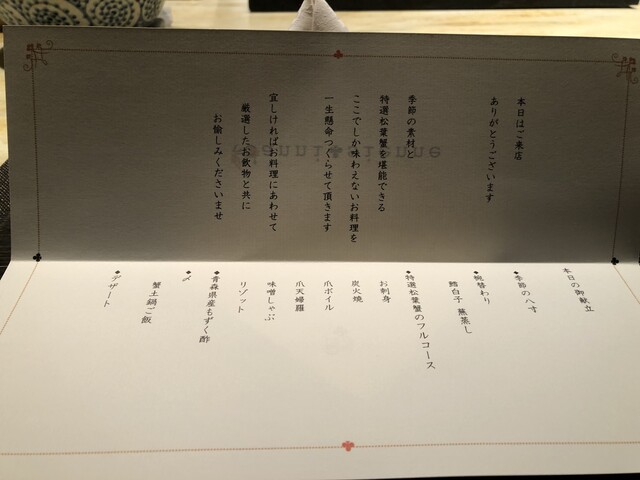 本日はご来店
ありがとうございます
季節の素材と
特選松葉蟹を堪能できる
ここでしか味わえないお料理を
一生懸命つくらせて頂きます
宜しければお料理にあわせて
厳選したお飲物と共に
お愉しみくださいませ
本日の御献立
◆季節の八寸
◆椀替わり
鱈白子 蕪蒸し
◆特選松葉蟹のフルコース
お刺身
炭火焼
爪ボイル
爪天婦羅
味噌しゃぶ
リゾット
◆青森県産もずく酢
◆〆
蟹土鍋ご飯
◆デザート